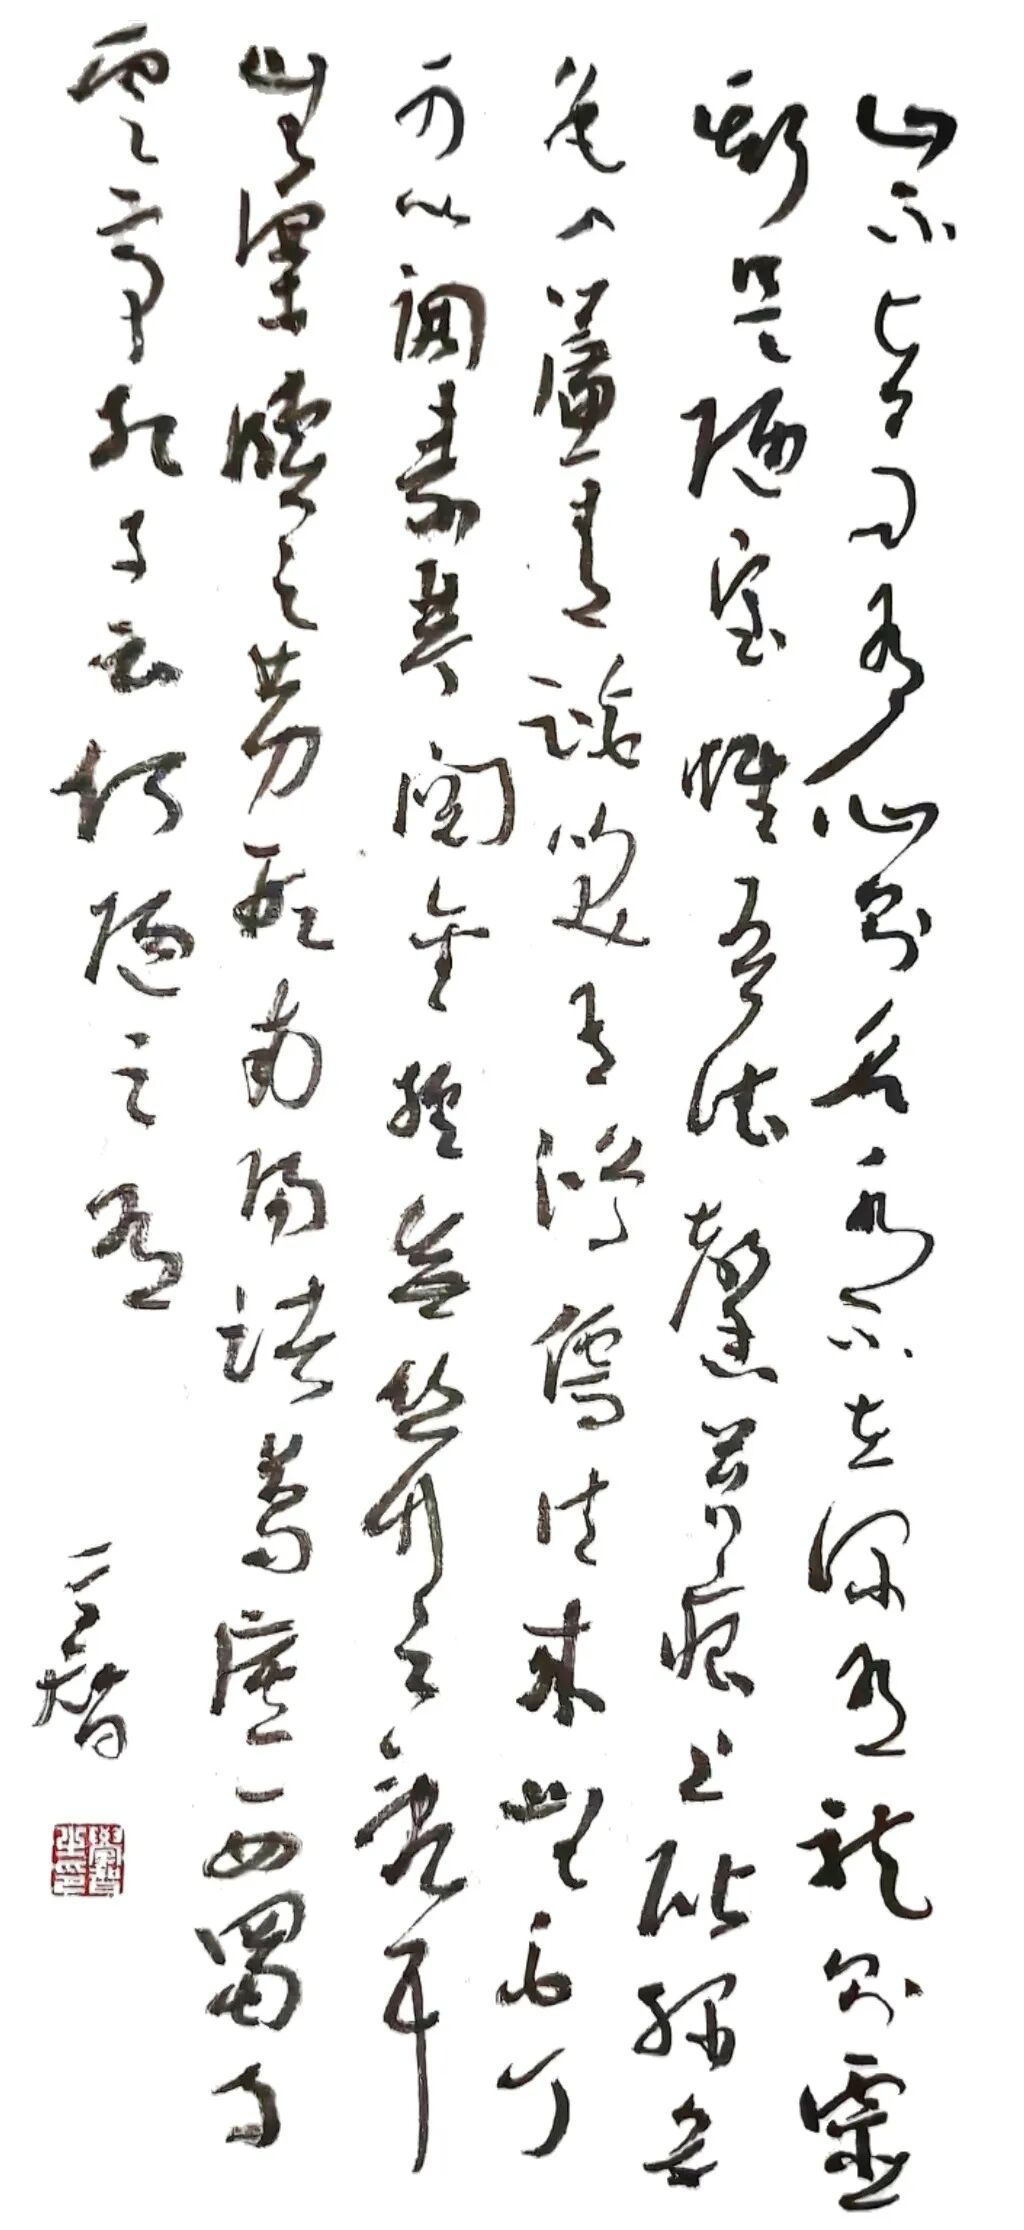 山不在高有仙則名水不在深有龍則靈
斯是陋室惟吾德馨苔痕上階綠草
色入簾青談笑有鴻儒往來無白丁
可以調素琴閱金經無絲竹之亂耳
無案牘之勞形南陽諸葛廬西蜀子
雲亭孔子云何陋之有